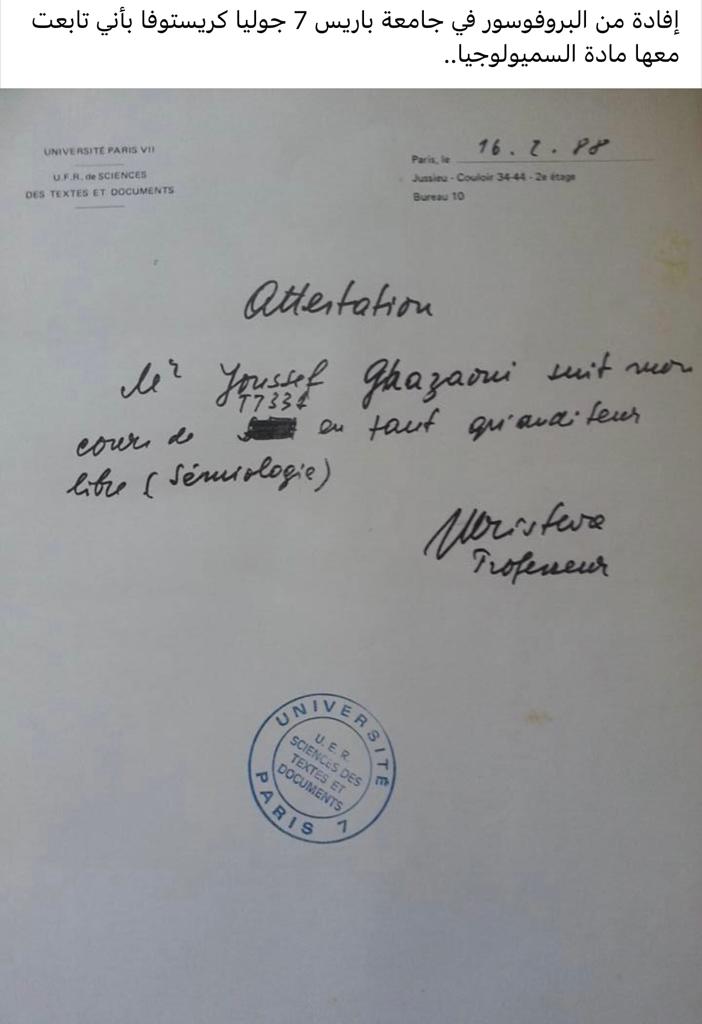 إفادة من البروفوسور في جامعة باريس 7 جوليا كريستوفا بأني تابعت
معها مادة السميولوجيا..
UNIVERSITÉ PARIS VII
U.F.R. de SCIENCES
DES TEXTES ET DOCUMENTS
Paris, le 16.2.88
Jussieu - Couloir 34-44 - 2e étage
Bureau 10
Attestation
Mr Youssef Ghazaoui suit mon
T7331
cours de en tant qu'auditeur
libre (Sémiologie)
Kristeva
Professeur
UNIVERSITÉ PARIS 7
U. E. R.
SCIENCES DES
TEXTES ET
DOCUMENTS